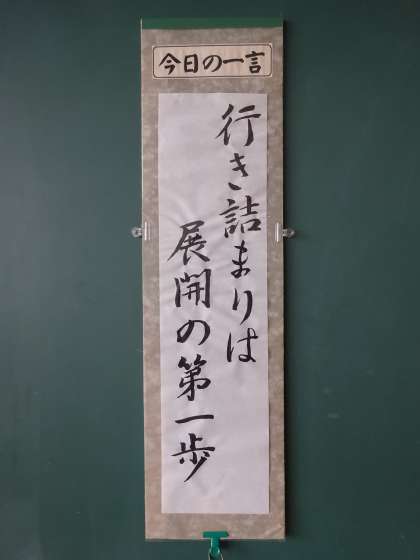 今日の一言
行き詰まりは
展開の第一歩